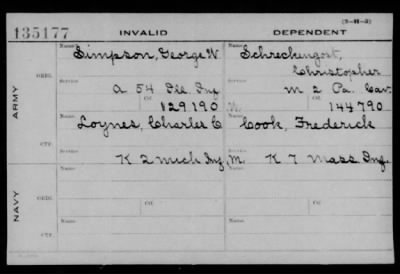 (3-H-3)
135177 INVALID DEPENDENT
ARMY
ORIG.
Name Simpson, George W Name Schreckengost,
Christopher
Service A 54 Ill Inf Service M 2 Pa. Cav.
Ctf. 129190 Ctf. 144790
CTF.
Name Loynes, Charles C Name Cook, Frederick
Service K 2 Mich Inf, M. Service K 7 Mass Inf.
NAVY
ORIG.
Name Name
Service Ctf. Service Ctf.
CTF.
Name Name
Service Service